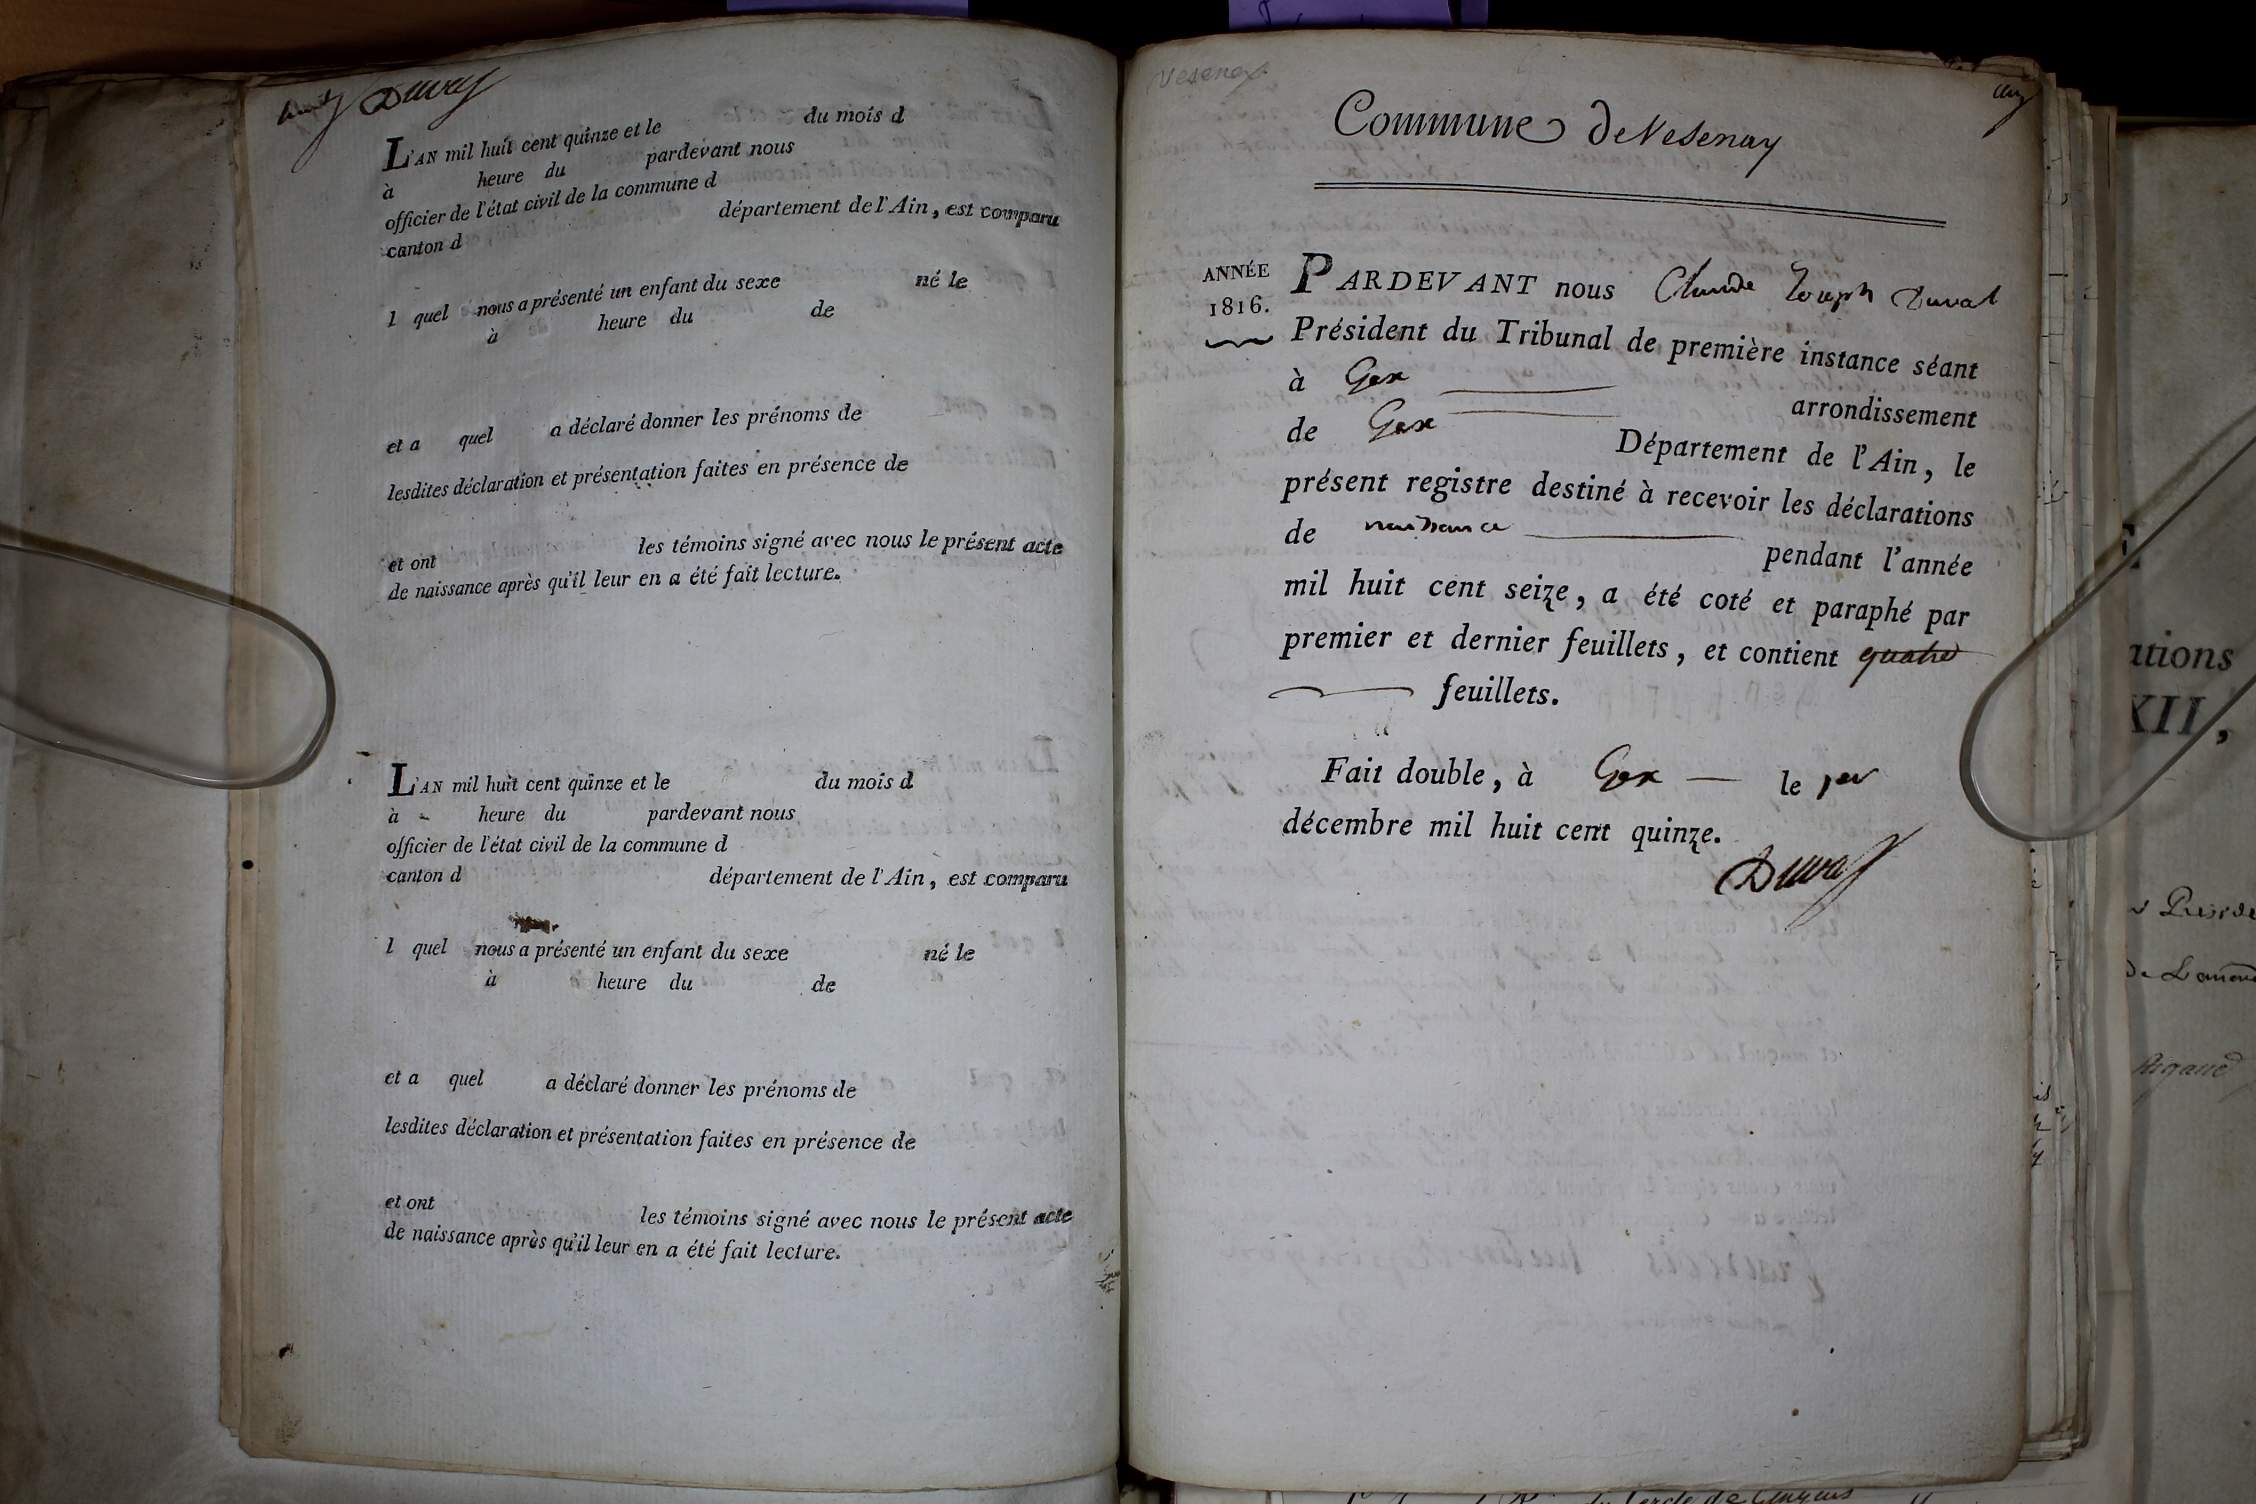 Duval
L'AN mil huit cent quinze et le du mois d
à heure du pardevant nous
officier de l'état civil de la commune d
canton d département de l'Ain, est comparu
l quel nous a présenté un enfant du sexe né le
à heure du de
et a quel a déclaré donner les prénoms de
lesdites déclaration et présentation faites en présence de
et ont les témoins signé avec nous le présent acte
de naissance après qu'il leur en a été fait lecture.
L'AN mil huit cent quinze et le du mois d
à heure du pardevant nous
officier de l'état civil de la commune d
canton d département de l'Ain, est comparu
l quel nous a présenté un enfant du sexe né le
à heure du de
et a quel a déclaré donner les prénoms de
lesdites déclaration et présentation faites en présence de
et ont les témoins signé avec nous le présent acte
de naissance après qu'il leur en a été fait lecture.
Vesenex
Commune de Vesenay
ANNÉE
1816.
PARDEVANT nous Claude Joseph Duval
Président du Tribunal de première instance séant
à Gex arrondissement
de Gex Département de l'Ain, le
présent registre destiné à recevoir les déclarations
de naissance pendant l'année
mil huit cent seize, a été coté et paraphé par
premier et dernier feuillets, et contient quatre
feuillets.
Fait double, à Gex le per
décembre mil huit cent quinze.
Duval
ations
XII,
Rigaud